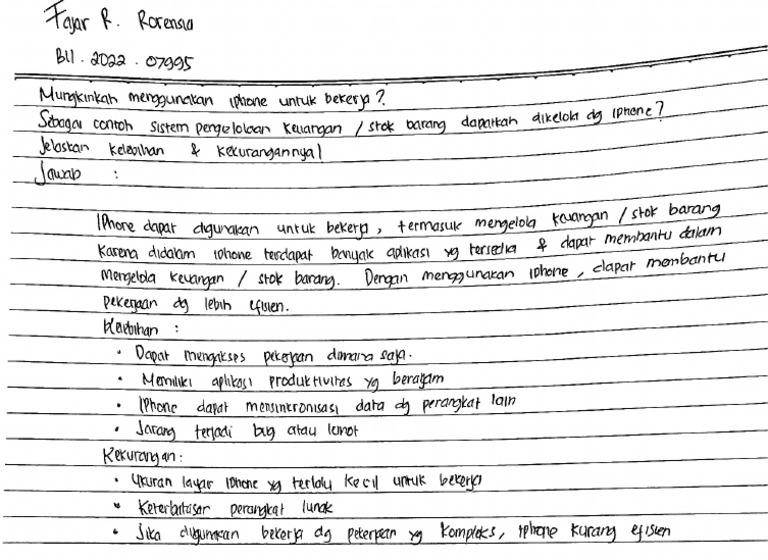 Fajar R. Rorensia
B11.2022.07995
Mungkinkah menggunakan iphone untuk bekerja?
Sebagai contoh sistem pengelolaan keuangan / stok barang dapatkah dikelola dg iphone?
Jelaskan kelebihan & kekurangannya!
Jawab :
IPhone dapat digunakan untuk bekerja, termasuk mengelola keuangan / stok barang
karena didalam iphone terdapat banyak aplikasi yg tersedia & dapat membantu dalam
mengelola keuangan / stok barang. Dengan menggunakan iphone, dapat membantu
pekerjaan dg lebih efisien.
Kelebihan :
• Dapat mengakses pekerjaan dimana saja.
• Memiliki aplikasi produktivitas yg beragam
• IPhone dapat mensinkronisasi data dg perangkat lain
• Jarang terjadi bug atau lemot
Kekurangan:
• Ukuran layar iphone yg terlalu kecil untuk bekerja
• Keterbatasan perangkat lunak
• Jika digunakan bekerja dg pekerjaan yg kompleks, iphone kurang efisien